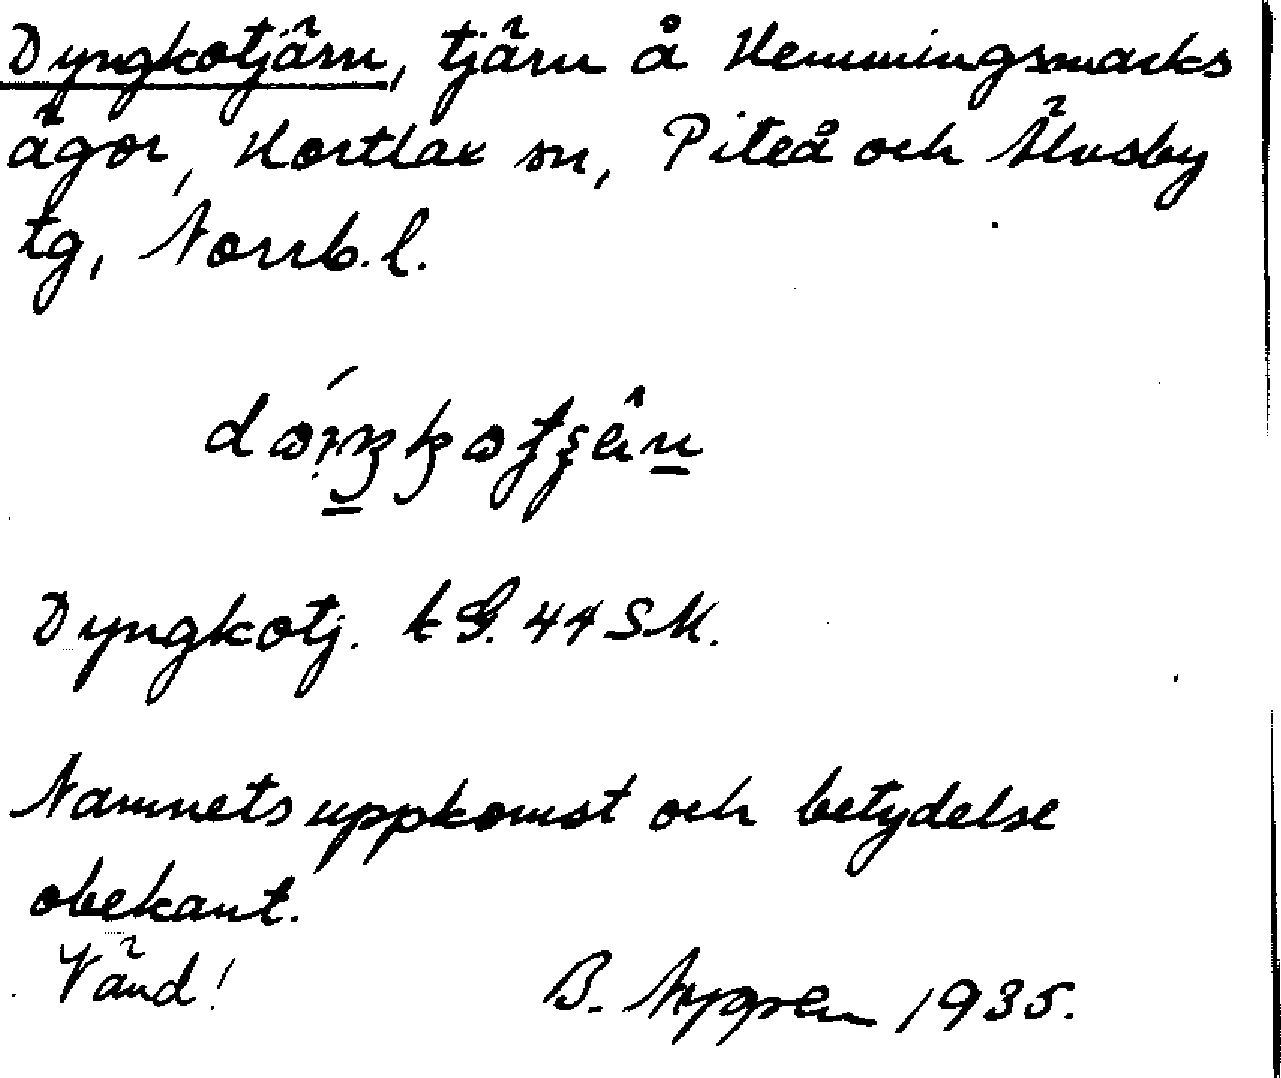 Dyngkotjärn, tjärn å Hemmingsmarks
ägor, Hortlax sn, Piteå och Älvsby
tg, Norrb. l.
Dyngkotj. 44 SM.
Namnets uppkomst och betydelse
obekant.
Vänd!
B. Nygren 1935.